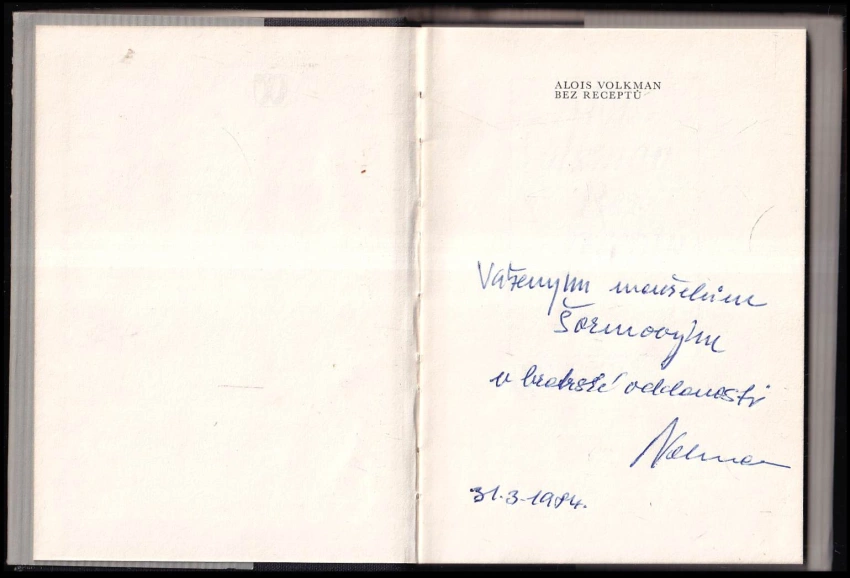 ALOIS VOLKMAN
BEZ RECEPTŮ
Váženým manželům
Šormovým
v bratrské oddanosti
Volkman
31.3.1984.